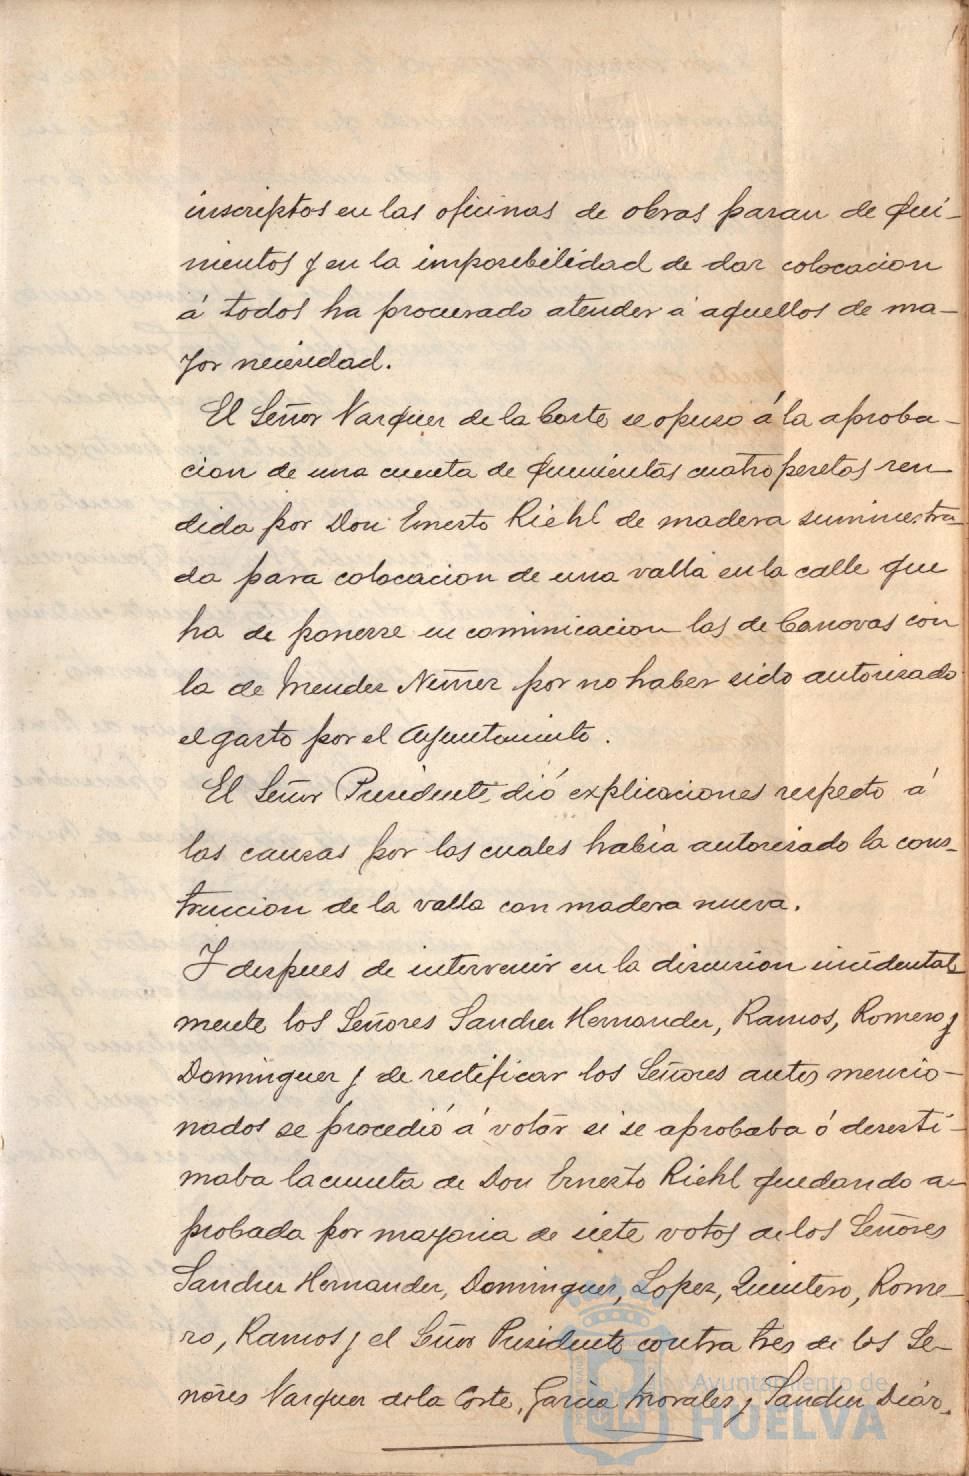 inscriptos en las oficinas de obras pasan de Qui-
nientos y en la imposebilidad de dar colocacion
á todos ha procurado atender á aquellos de ma-
yor necesidad.
El Señor Vazquez de la Corte se opuso á la aproba-
cion de una cuenta de Quinientas cuatro pesetas ren
dida por Don Ernesto Riehl de madera suministra-
da para colocacion de una valla en la calle que
ha de ponerse en cominicacion las de Canovas con
la de Mendez Nuñez por no haber sido autorizado
el gasto por el Ayuntamiento.
El Señor Presidente dió explicaciones respecto á
las causas por las cuales habia autorizado la cons-
truccion de la valla con madera nueva.
Y despues de intervenir en la discusion incidental-
mente los Señores Sanchez Hernandez, Ramos, Romero y
Dominguez y de rectificar los Señores antes mencio-
nados se procedió á votar si se aprobaba ó desesti-
maba la cuenta de Don Ernesto Riehl quedando a-
probada por mayoria de siete votos de los Señores
Sanchez Hernandez, Dominguez, Lopez, Quintero, Rome-
ro, Ramos y el Señor Presidente contra tres de los Se-
ñores Vazquez de la Corte, Garcia Morales y Sanchez Diaz.
Ayuntamiento de
HUELVA